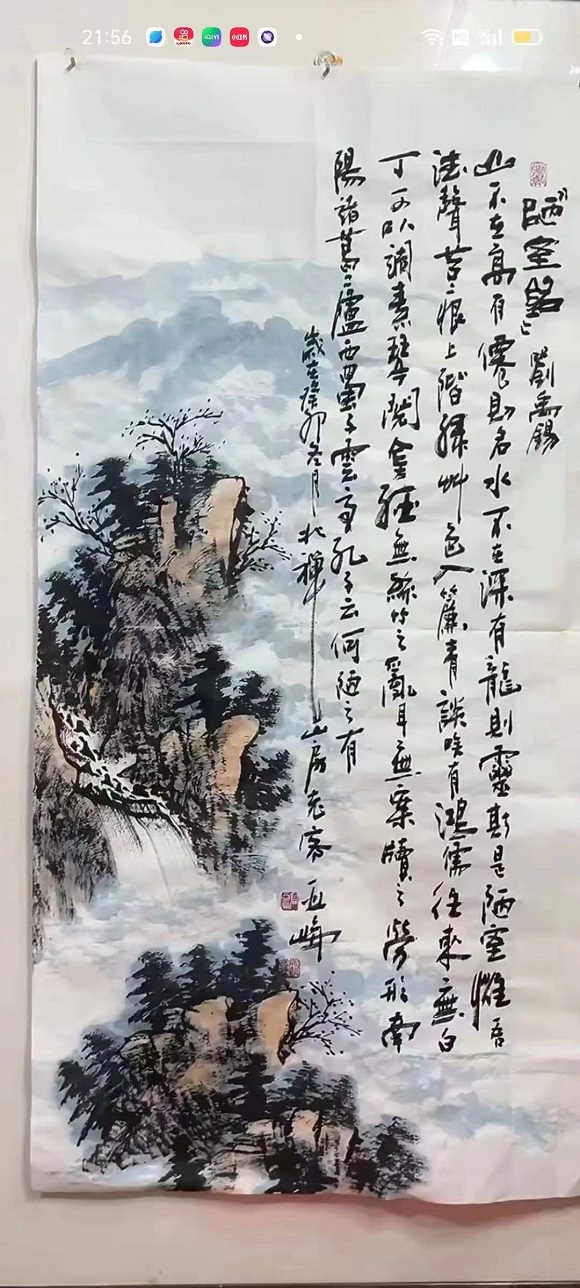 21:56
《陋室銘》 劉禹錫
山不在高有僊則名水不在深有龍則靈斯是陋室惟吾
德馨苔痕上階綠艸色入簾青談咲有鴻儒往來無白
丁可以調素琴閱金經無絲竹之亂耳無案牘之勞形南
陽諸葛廬西蜀子雲亭孔子云何陋之有
歲在癸卯冬月北禪山房老客亚峰